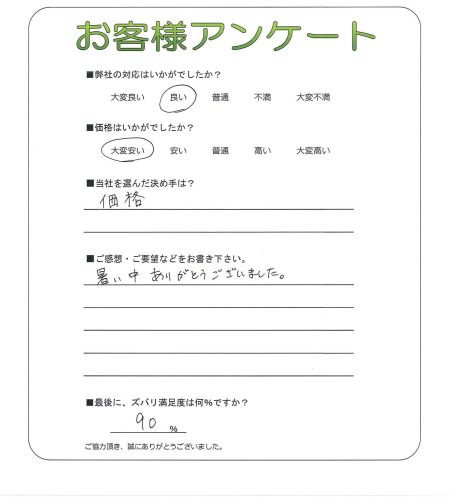 お客様アンケート
■弊社の対応はいかがでしたか？
大変良い 良い 普通 不満 大変不満
■価格はいかがでしたか？
大変安い 安い 普通 高い 大変高い
■当社を選んだ決め手は？
価格
■ご感想・ご要望などをお書き下さい。
暑い中 ありがとうございました。
■最後に、ズバリ満足度は何％ですか？
90 %
ご協力頂き、誠にありがとうございました。